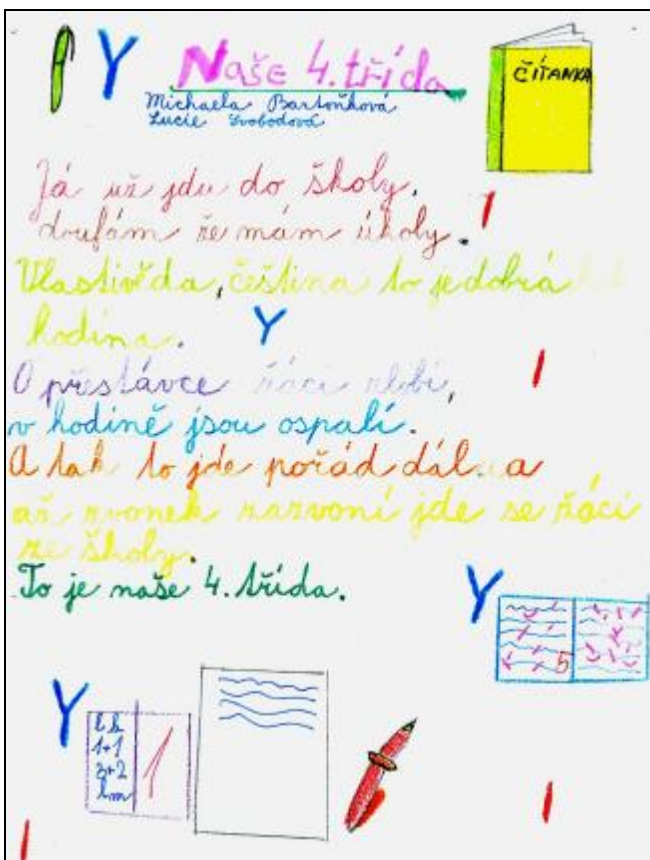 Y
Naše 4. třída
ČÍTANKA
Michaela Bartoňková
Lucie Svobodová
Já už jdu do školy.
doufám že mám úkoly.
I
Vlastivěda, čeština to je dobrá
hodina.
Y
I
O přestávce žáci zlobí,
v hodině jsou ospalí.
A tak to jde pořád dál a
až zvonek zazvoní jde se žáci
ze školy.
To je naše 4. třída.
Y
5
Y
1+1
3+2
1
I
I